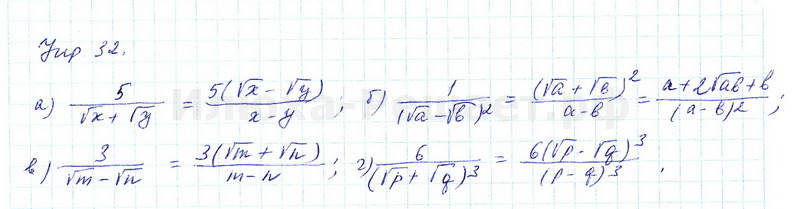 Упр 32.
а) 5/(√x + √y) = 5(√x - √y)/(x - y); б) 1/(√a - √b)² = (√a + √b)²/(a - b) = (a + 2√ab + b)/(a - b)²;
в) 3/(√m - √n) = 3(√m + √n)/(m - n); г) 6/(√p + √q)³ = 6(√p - √q)³/(p - q)³.